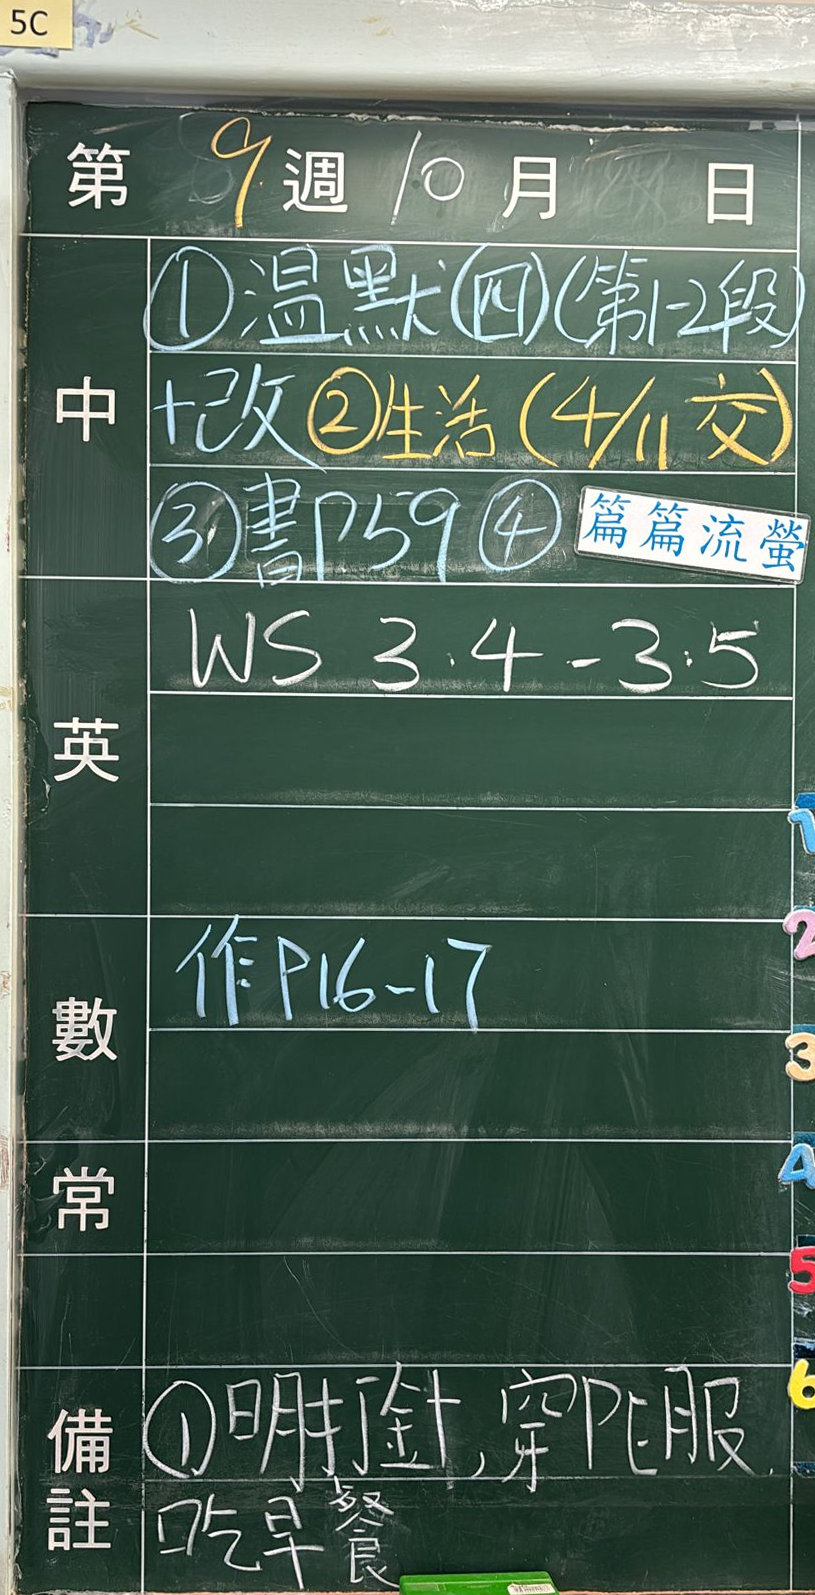 5C
第 9 週 10 月 日
中
①溫默(四)(第1-2段)
+改 ②生活(4/11交)
③書P59 ④ 篇篇流螢
英
WS 3.4 - 3.5
數
作P16-17
常
備註
①明打金十,穿PE服
吃早餐
1
2
3
4
5
6